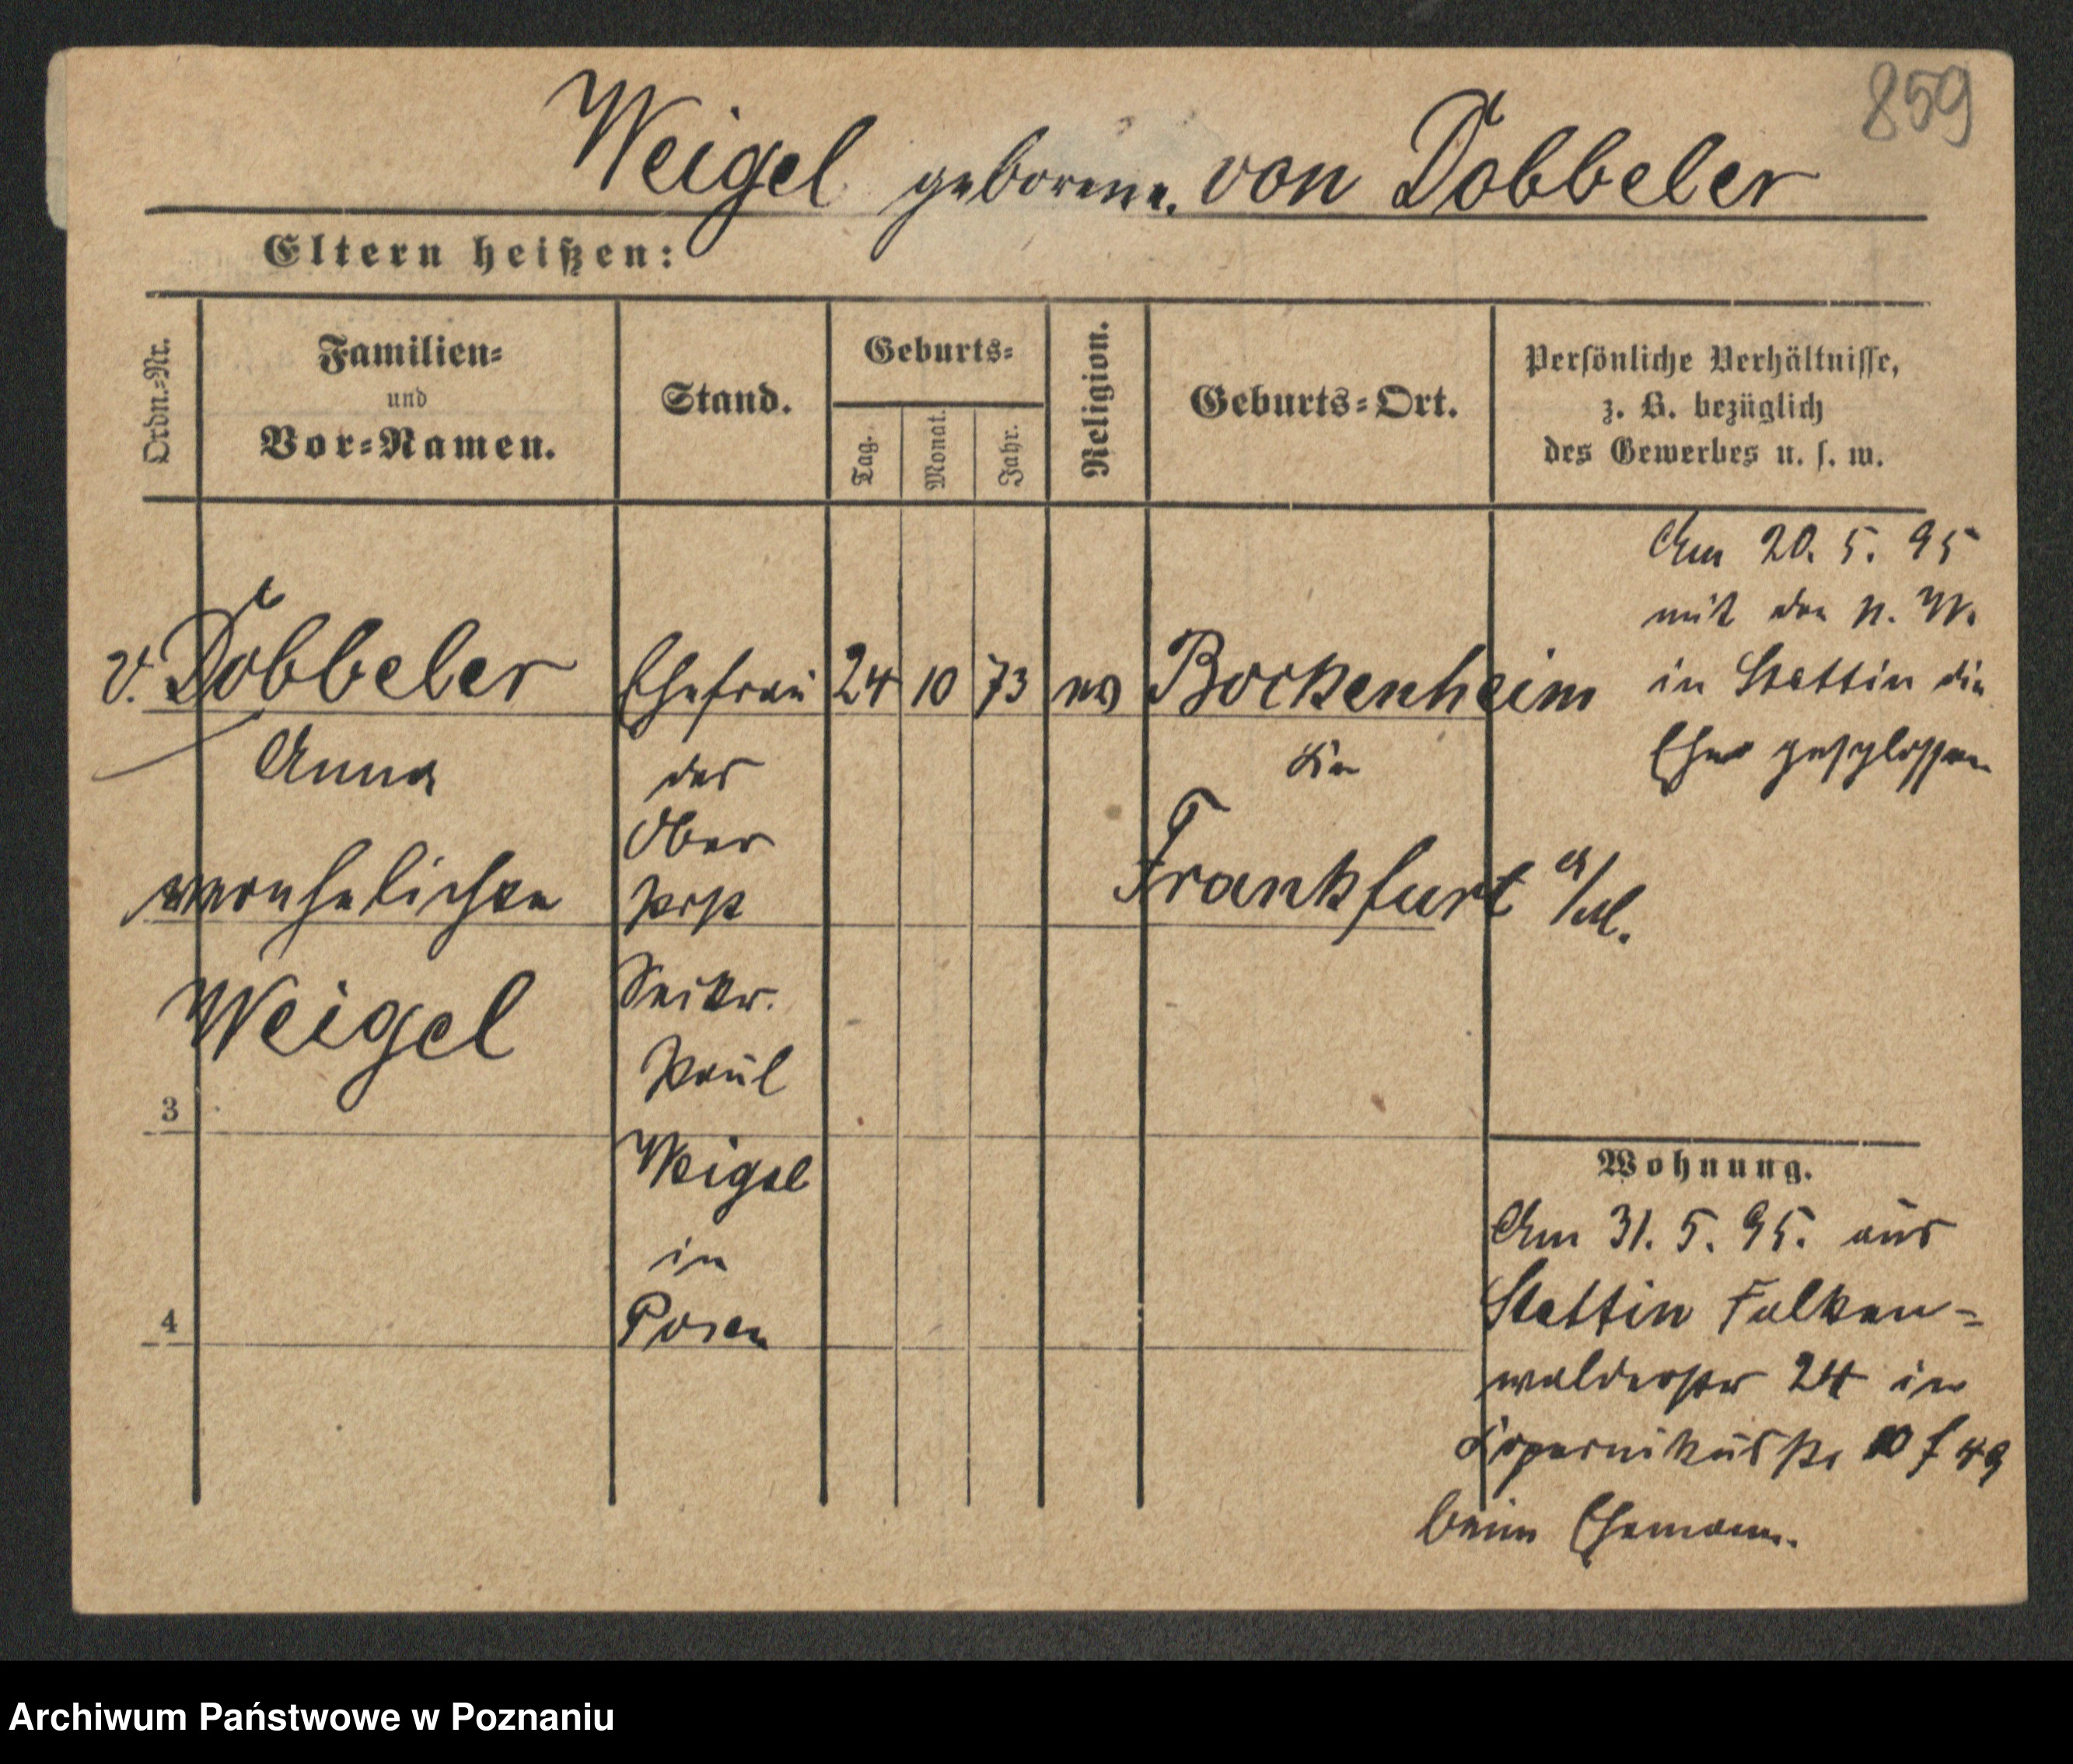 859
Weigel geborene von Döbbeler
Eltern heißen:
Ordn.=Nr.
Familien=
und
Vor=Namen.
Stand.
Geburts=
Tag.
Monat.
Jahr.
Religion.
Geburts=Ort.
Persönliche Verhältnisse,
z. B. bezüglich
des Gewerbes u. s. w.
v. Döbbeler
Anna
verehelichte
Weigel
3
4
Ehefrau
des
Ober
Post
Sekr.
Paul
Weigel
in
Posen
24 10 73 ev
Bockenheim
Kr
Frankfurt a/M.
Am 20. 5. 95
mit den n. M.
in Stettin die
Ehe geschlossen
Wohnung.
Am 31. 5. 95. aus
Stettin Falken=
walderstr 24 in
Kopernikusstr 10 f 49
beim Ehemann.
Archiwum Państwowe w Poznaniu